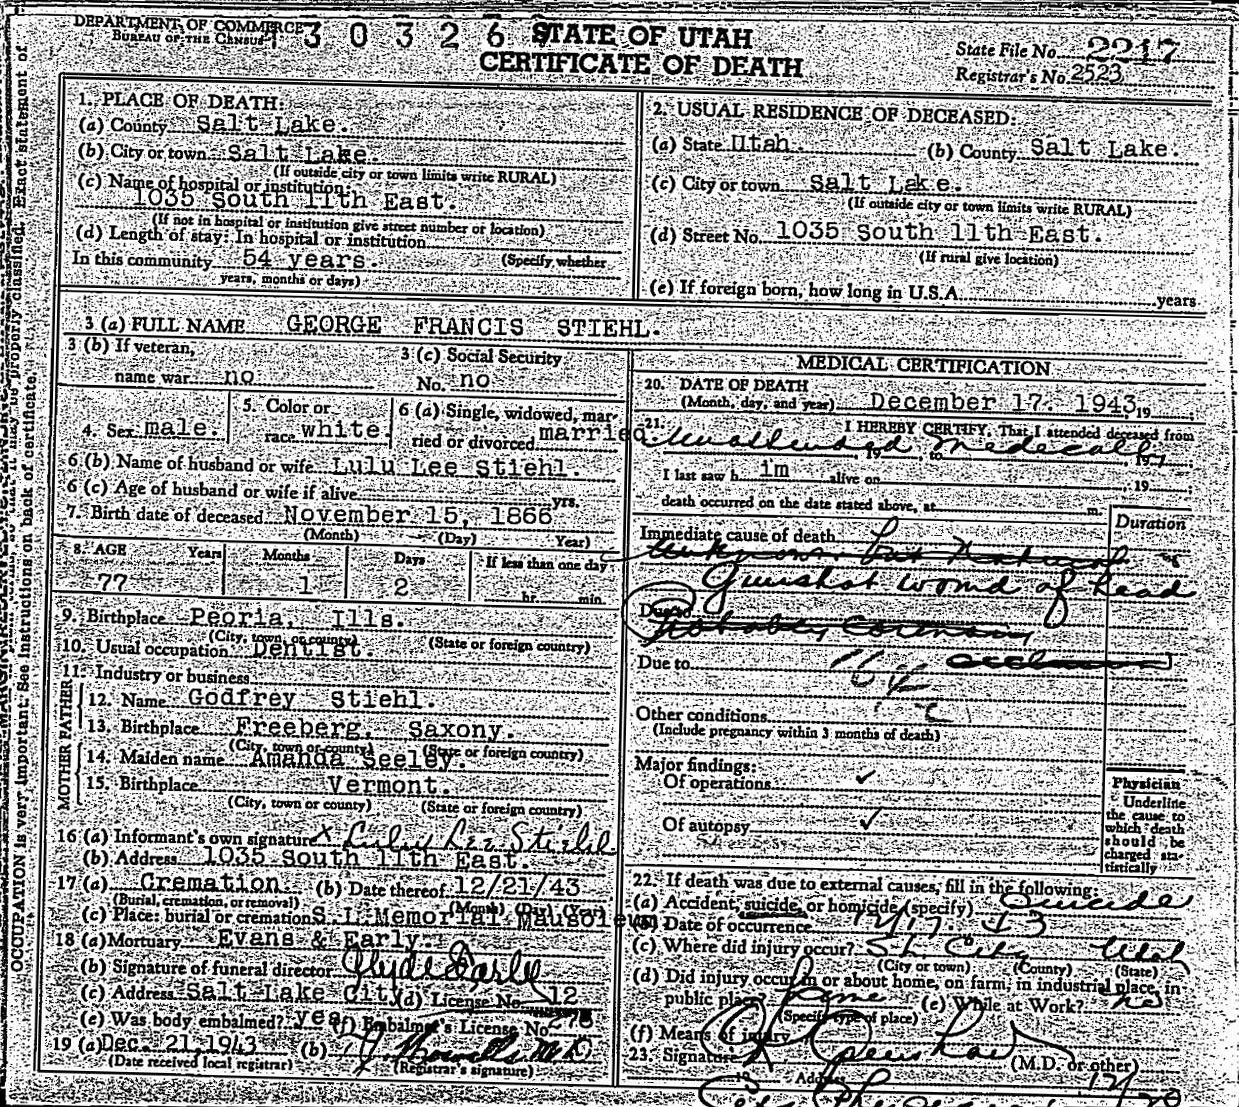 DEPARTMENT OF COMMERCE
BUREAU OF THE CENSUS
130326
STATE OF UTAH
CERTIFICATE OF DEATH
State File No. 2217
Registrar's No. 2523
1. PLACE OF DEATH:
(a) County Salt Lake.
(b) City or town Salt Lake.
(If outside city or town limits write RURAL)
(c) Name of hospital or institution:
1035 South 11th East.
(If not in hospital or institution give street number or location)
(d) Length of stay: In hospital or institution
In this community 54 years. (Specify whether
years, months or days)
2. USUAL RESIDENCE OF DECEASED:
(a) State Utah. (b) County Salt Lake.
(c) City or town Salt Lake.
(If outside city or town limits write RURAL)
(d) Street No. 1035 South 11th East.
(If rural give location)
(e) If foreign born, how long in U.S.A. years
3 (a) FULL NAME GEORGE FRANCIS STIEHL.
3 (b) If veteran,
name war no
3 (c) Social Security
No. no
4. Sex male.
5. Color or
race white.
6 (a) Single, widowed, mar-
ried or divorced married
6 (b) Name of husband or wife Lulu Lee Stiehl.
6 (c) Age of husband or wife if alive yrs.
7. Birth date of deceased November 15, 1866
(Month) (Day) Year)
8. AGE Years Months Days If less than one day
77 1 2 hr. min.
9. Birthplace Peoria, Ills.
(City, town, or county) (State or foreign country)
10. Usual occupation Dentist.
11. Industry or business
FATHER
12. Name Godfrey Stiehl.
13. Birthplace Freeberg, Saxony.
(City, town or county) (State or foreign country)
MOTHER
14. Maiden name Amanda Seeley.
15. Birthplace Vermont.
(City, town or county) (State or foreign country)
16 (a) Informant's own signature X Lulu Lee Stiehl
(b) Address 1035 South 11th East.
17 (a) Cremation. (b) Date thereof 12/21/43
(Burial, cremation, or removal) (Month) (Day) (Year)
(c) Place: burial or cremation S.L. Memorial Mausoleum
18 (a) Mortuary Evans & Early.
(b) Signature of funeral director Clyde Early
(c) Address Salt Lake City (d) License No. 12
(e) Was body embalmed? yes (f) Embalmer's License No. 278
19 (a) Dec. 21, 1943 (b) M.D.
(Date received local registrar) (Registrar's signature)
MEDICAL CERTIFICATION
20. DATE OF DEATH
(Month, day, and year) December 17. 1943 19
21. I HEREBY CERTIFY, That I attended deceased from
Unattended 19 , to Medically , 19
I last saw h im alive on , 19 ;
death occurred on the date stated above, at m.
Duration
Immediate cause of death
unknown but Natural
Gunshot wound of head
Due to
Probably coronary
Due to
Other conditions
(Include pregnancy within 3 months of death)
Major findings:
Of operations ✓
Of autopsy ✓
Physician
Underline
the cause to
which death
should be
charged sta-
tistically
22. If death was due to external causes, fill in the following:
(a) Accident, suicide, or homicide (specify) Suicide
(b) Date of occurrence 12/17 43
(c) Where did injury occur? S.L. City Utah
(City or town) (County) (State)
(d) Did injury occur in or about home, on farm, in industrial place, in
public place? Home (e) While at Work? no
(Specify type of place)
(f) Means of injury
23. Signature (M.D. or other)
Address
OCCUPATION is very important. See instructions on back of certificate.
properly classified. Exact statement of